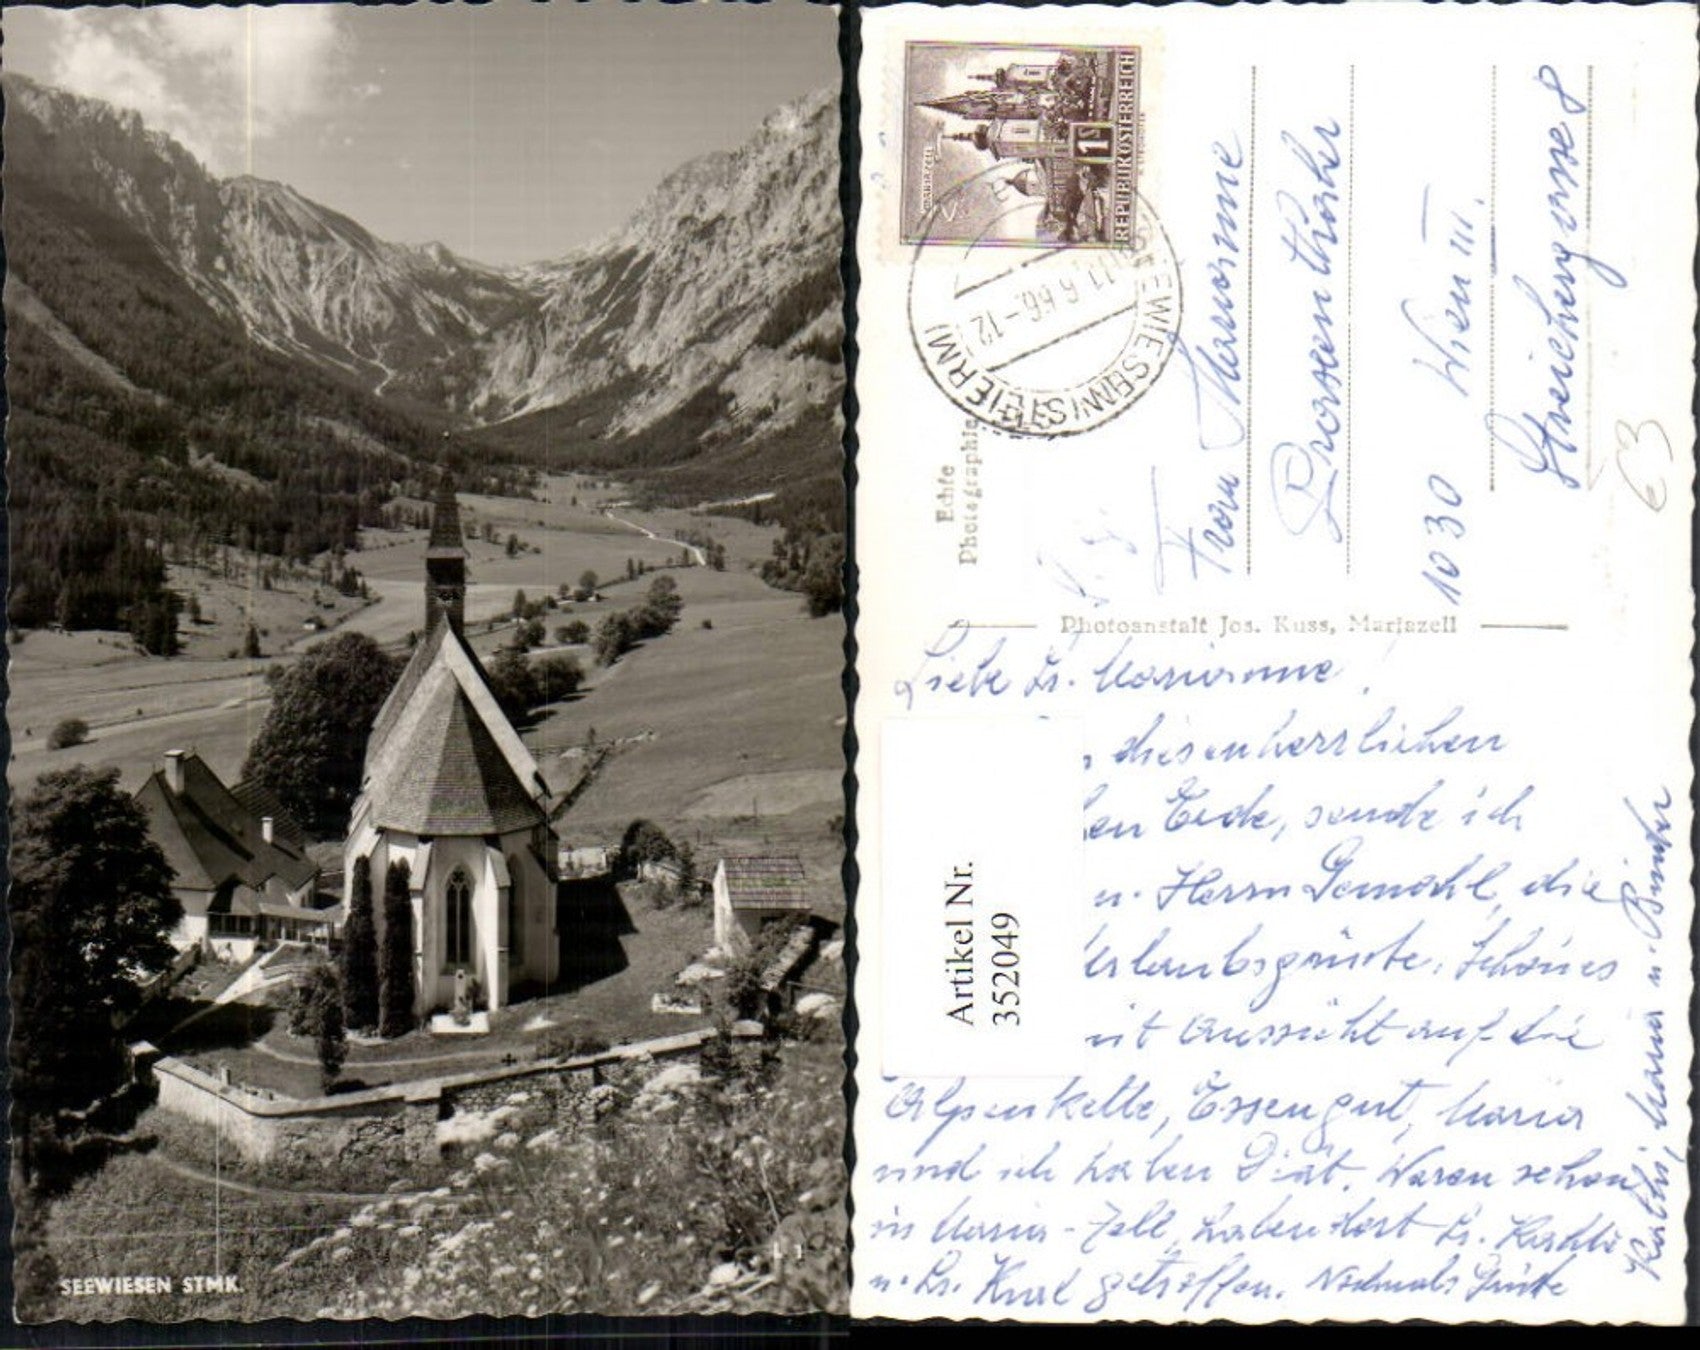 SEEWIESEN STMK.
MARIAZELL
1S
REPUBLIK ÖSTERREICH
SEEWIESEN (STEIERM)
11.6.66.-12
Echte
Photographie
Frau Marianne
1030 Wien III.
8
€3
Photoanstalt Jos. Kuss, Mariazell
Liebe Fr. Marianne!
diesen herrlichen
en Erde, sende ich
u. Herrn Gemahl, die
Urlaubsgrüße. Schönes
mit Aussicht auf die
Alpenkette, Essen gut, Maria
und ich haben Diät. Waren schon
in Maria-Zell, haben dort Fr. Kathi
u. Fr. Kurz getroffen. Nochmals Grüße
Kathi, Maria u. Binder
Artikel Nr.
352049